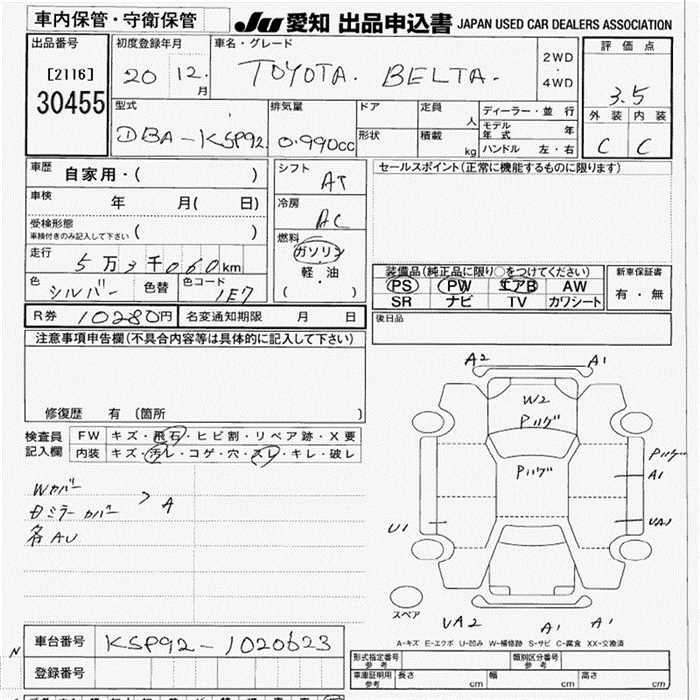 車内保管・守衛保管
JU 愛知 出品申込書 JAPAN USED CAR DEALERS ASSOCIATION
出品番号
[2116]
30455
初度登録年月
20 12.月
車名・グレード
TOYOTA. BELTA.
2WD・4WD
評価点
3.5
外装 内装
C C
型式
DBA-KSP92
排気量
0.990cc
ドア
形状
定員 人
積載 kg
ディーラー・並行
モデル年式 年
ハンドル 左・右
車歴 自家用・( )
車検 年 月( 日)
受検形態
車検付きのみ記入して下さい ( )
走行 5万3千060km
色 シルバー 色替 色コード 1E7
シフト AT
冷房 AC
燃料
ガソリン
・
軽・油
( )
セールスポイント(正常に機能するものに限ります)
装備品(純正品に限り○をつけてください)
PS PW エアB AW
SR ナビ TV カワシート
新車保証書
有・無
R券 10280円 名変通知期限 月 日
後日品
注意事項申告欄(不具合内容等は具体的に記入して下さい)
修復歴 有 (箇所 )
検査員記入欄
FW キズ・飛石・ヒビ割・リペア跡・X要
内装 キズ・汚レ・コゲ・穴・スレ・キレ・破レ
Wカバー
ミラーカバー > A
各AU
A2 A1
W2
Pハゲ
Pハゲ
Pハゲ
A1
U1
スペア
UA2 A1 A1
A-キズ E-エクボ U-凹み W-補修跡 S-サビ C-腐食 XX-交換済
車台番号 KSP92-1020623
登録番号
N
形式指定番号 参考 類別区分番号 参考
車庫証明用 参考 長さ cm 幅 cm 高さ cm